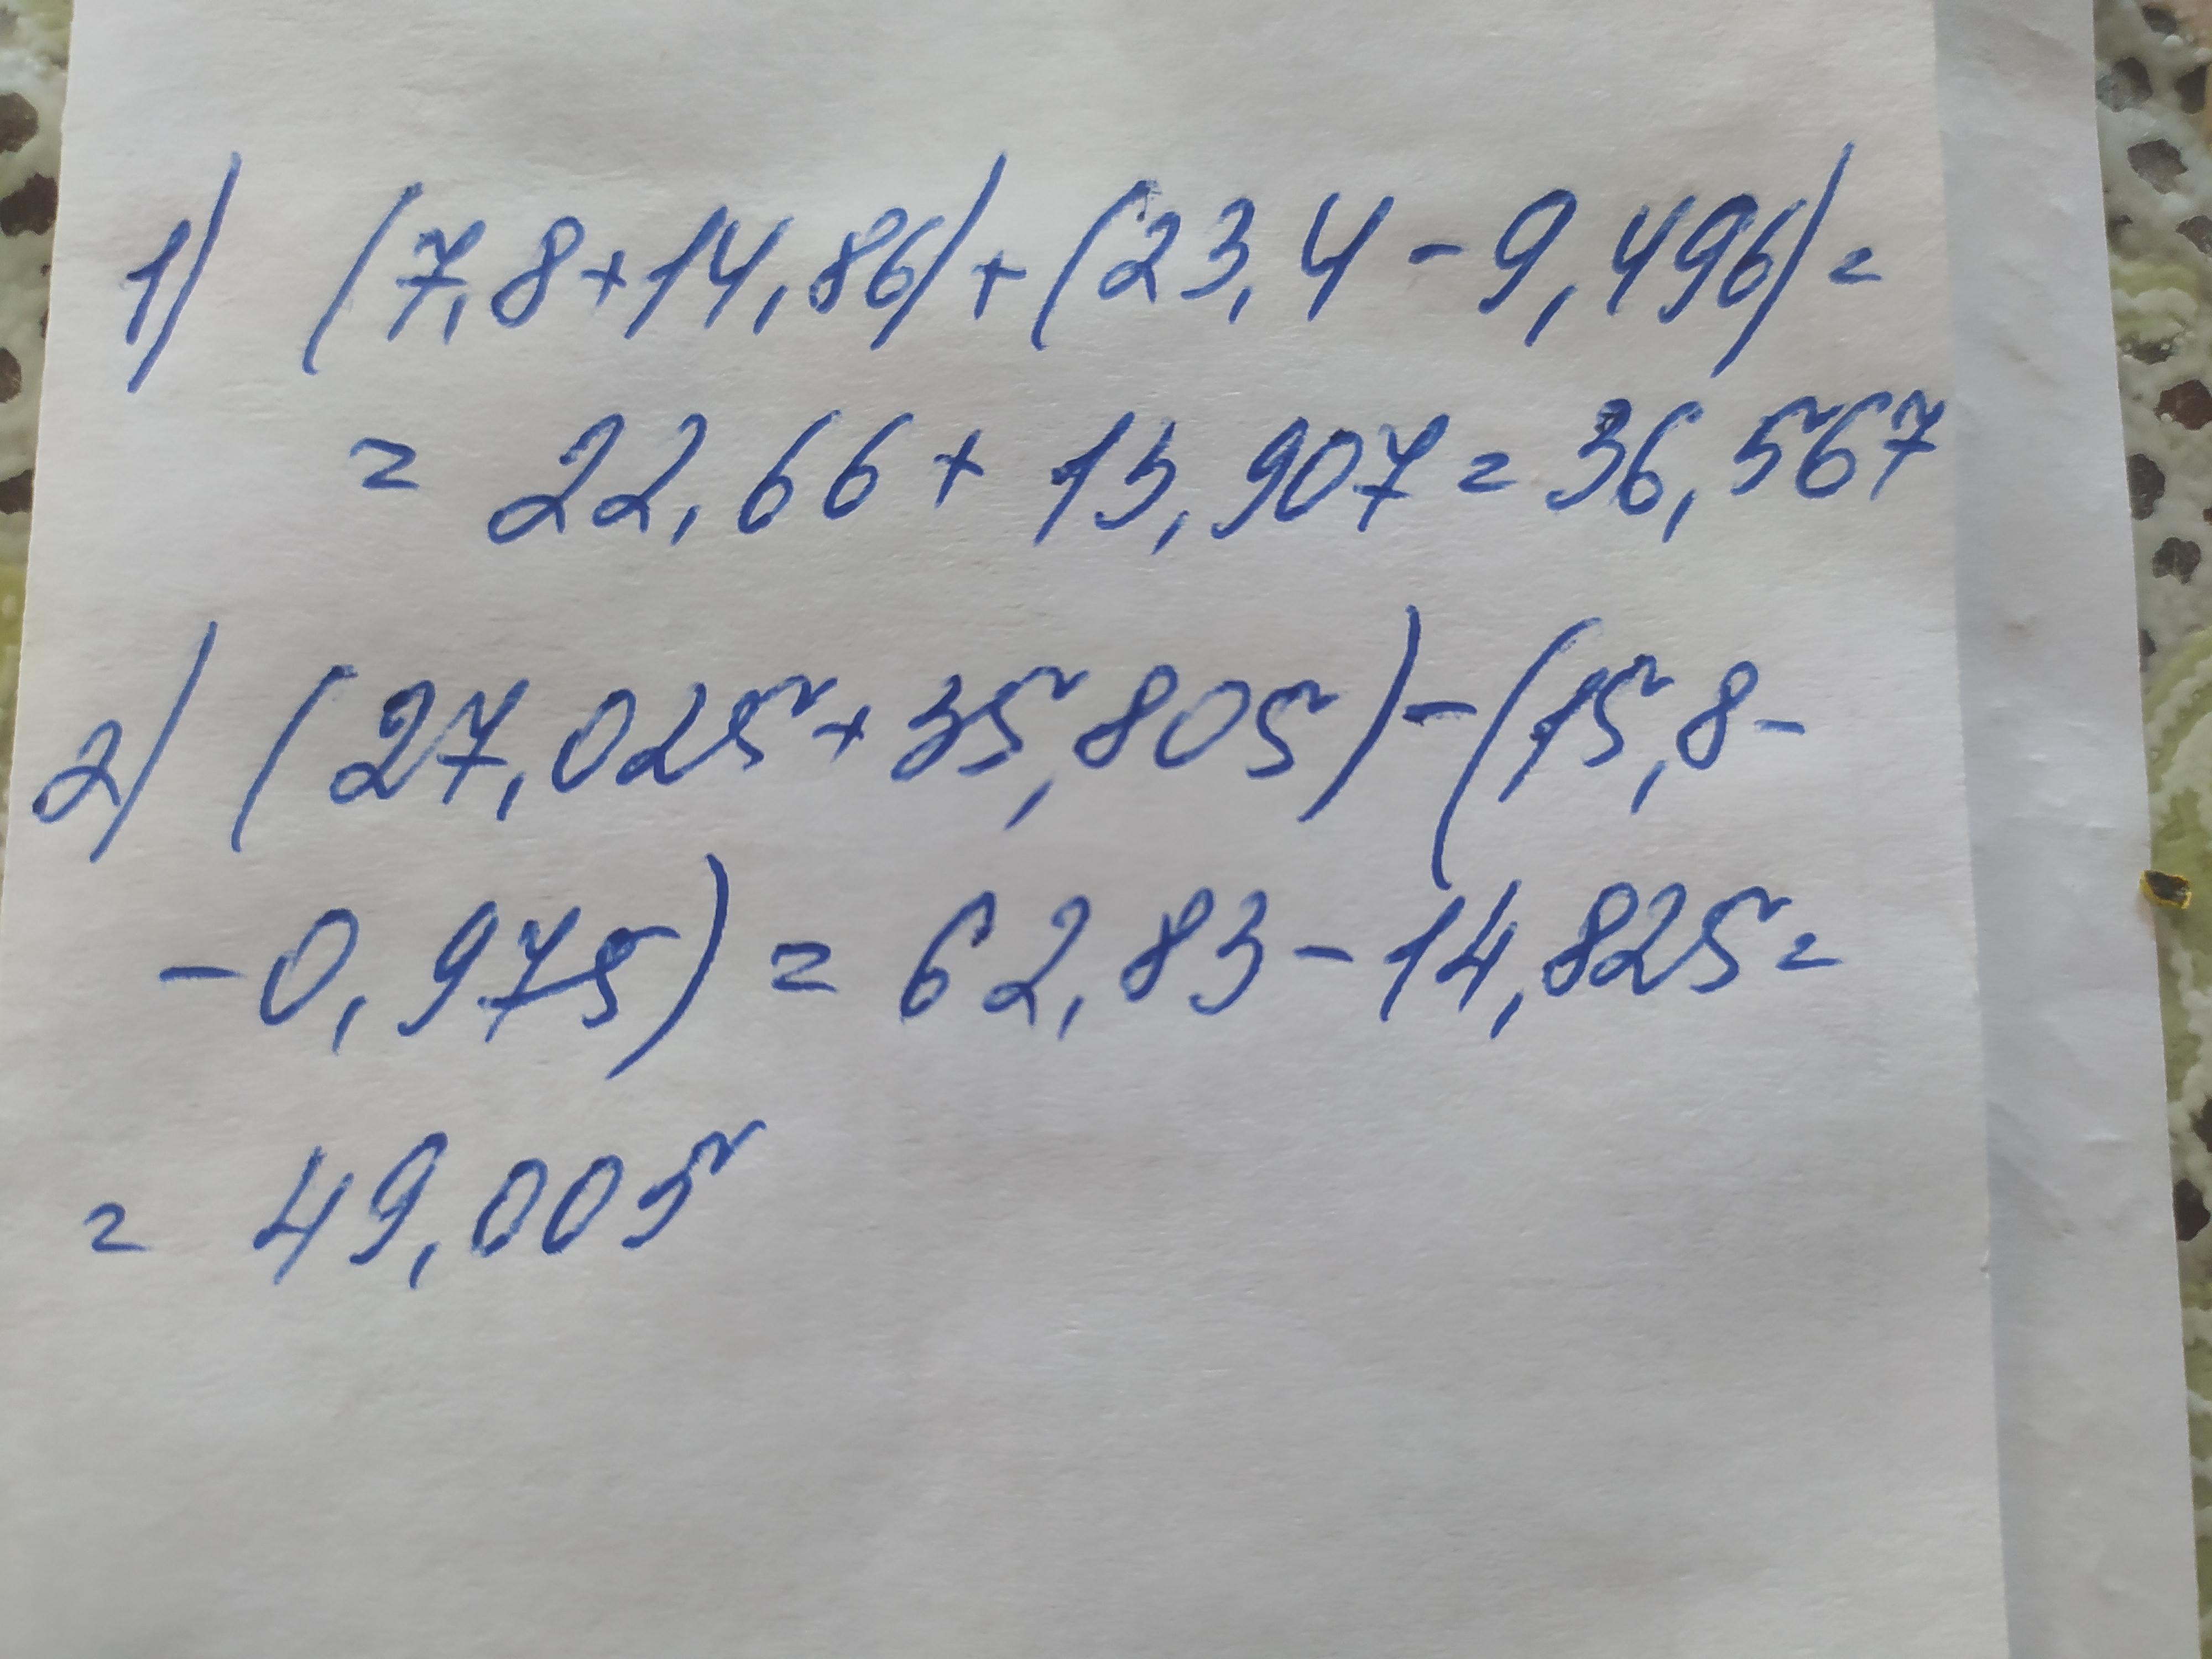 1) (7,8+14,86)+(23,4-9,496)=
= 22,66+13,907=36,567
2) (27,025+35,805)-(15,8-
-0,975)=62,83-14,825=
= 49,005